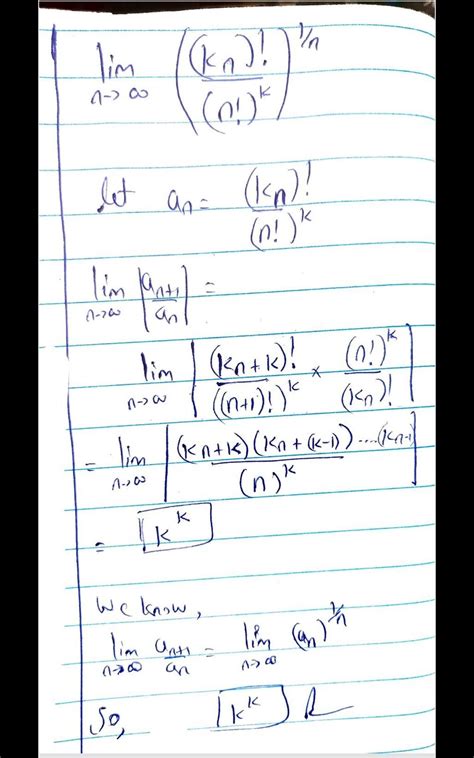 lim n→∞ ((kn)! / (n!)^k)^1/n
let an = (kn)! / (n!)^k
lim n→∞ |an+1 / an| =
lim n→∞ |(kn+k)! / ((n+1)!)^k × (n!)^k / (kn)!|
= lim n→∞ |(kn+k)(kn+(k-1))....(kn-1) / (n)^k|
= k^k
We know,
lim n→∞ an+1 / an = lim n→∞ (an)^1/n
So, k^k